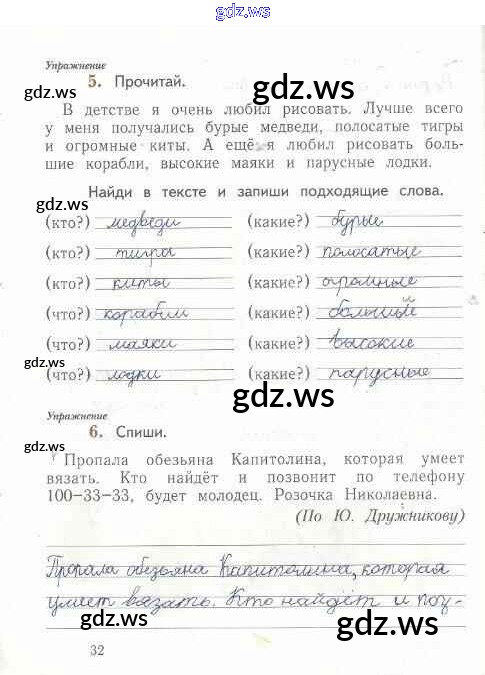 gdz.ws
Упражнение
5. Прочитай.
gdz.ws
gdz.ws
gdz.ws
В детстве я очень любил рисовать. Лучше всего
у меня получались бурые медведи, полосатые тигры
и огромные киты. А ещё я любил рисовать боль-
шие корабли, высокие маяки и парусные лодки.
Найди в тексте и запиши подходящие слова.
gdz.ws
gdz.ws
(кто?) медведи (какие?) бурые
(кто?) тигры (какие?) полосатые
(кто?) киты (какие?) огромные
gdz.ws
(что?) корабли (какие?) большые
й
(что?) маяки (какие?) высокие
gdz.ws
(что?) лодки (какие?) парусные
gdz.ws
gdz.ws
Упражнение
6. Спиши.
gdz.ws
Пропала обезьяна Капитолина, которая умеет
вязать. Кто найдёт и позвонит по телефону
100-33-33, будет молодец. Розочка Николаевна.
(По Ю. Дружникову)
gdz.ws
Прорала обезьяна Капитолина, которая
умеет вязать. Кто найдёт и поз-
gdz.ws
gdz.ws
32
gdz.ws